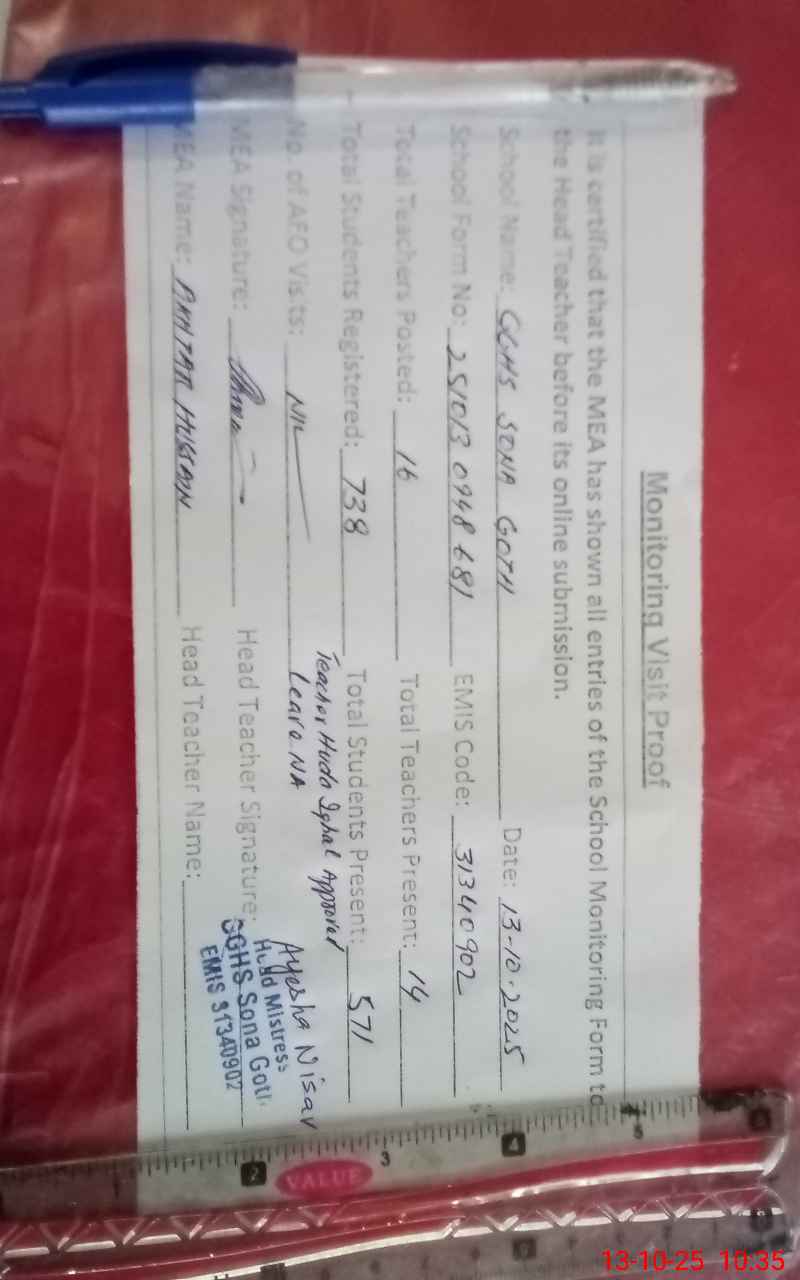 Monitoring Visit Proof
It is certified that the MEA has shown all entries of the School Monitoring Form to
the Head Teacher before its online submission.
School Name: GGHS SONA GOTH Date: 13-10-2025
School Form No: 2510130948681 EMIS Code: 31340902
Total Teachers Posted: 16 Total Teachers Present: 14
Total Students Registered: 738 Total Students Present: 571
Teacher Huda Iqbal Approved
No. of AEO Visits: NIL Leave NA
MEA Signature: Head Teacher Signature: Ayesha Nisar
MEA Name: AKHTAR HUSSAIN Head Teacher Name:
Head Mistress
GGHS Sona Goth
EMIS 31340902
2
3
4
5
VALUE
13-10-25 10:35